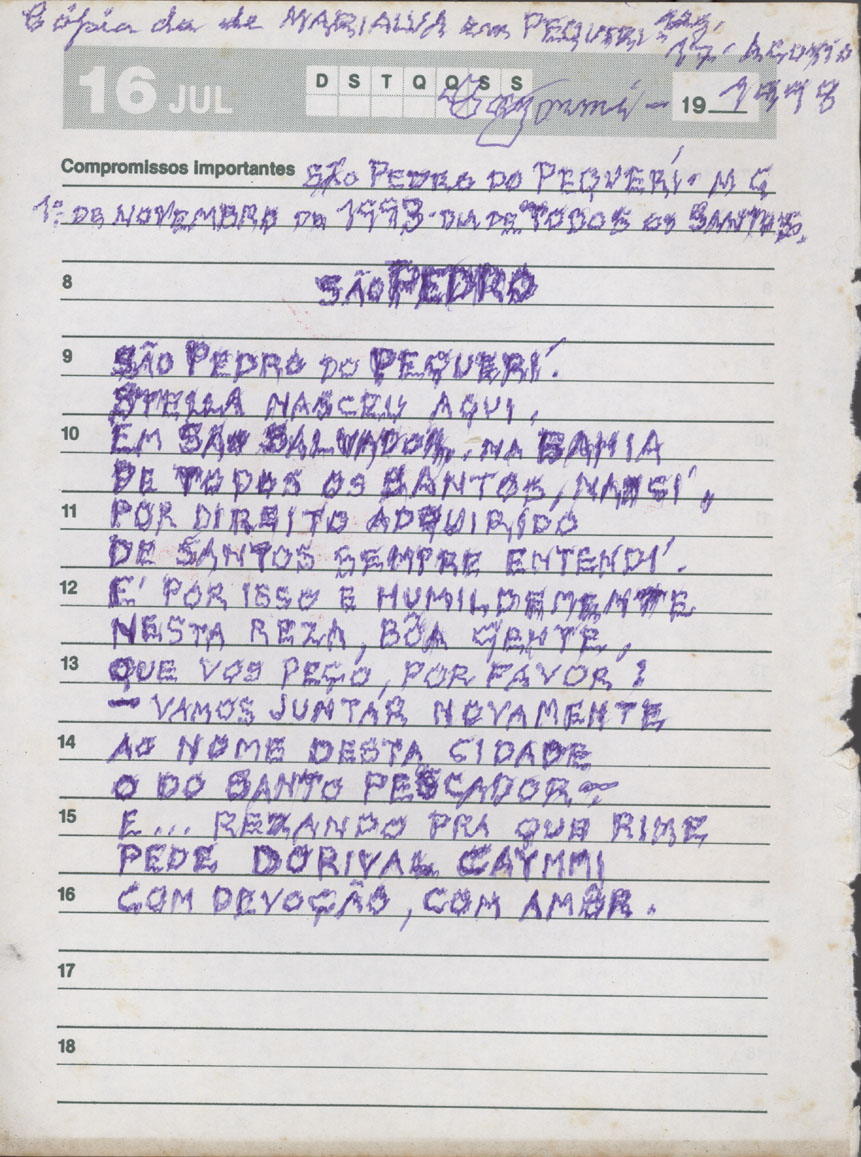 Cópia da de MARIALVA em PEQUERI
17. AGOSTO
1998
16 JUL
D S T Q Q S S
Caymmi -
19
Compromissos importantes SÃO PEDRO DO PEQUERÍ - M G
1º DE NOVEMBRO DE 1993 - DIA DE TODOS OS SANTOS.
8 SÃO PEDRO
9 SÃO PEDRO DO PEQUERÍ.
STELLA NASCEU AQUI,
10 EM SÃO SALVADOR, NA BAHIA
DE TODOS OS SANTOS, NASCÍ,
11 POR DIREITO ADQUIRIDO
DE SANTOS SEMPRE ENTENDÍ.
12 E' POR ISSO E HUMILDEMENTE
NESTA REZA, BÔA GENTE,
13 QUE VOS PEÇO, POR FAVOR:
— VAMOS JUNTAR NOVAMENTE
14 AO NOME DESTA CIDADE
O DO SANTO PESCADOR —
15 E... REZANDO PRA QUE RIME
PEDE DORIVAL CAYMMI
16 COM DEVOÇÃO, COM AMÔR.
17
18